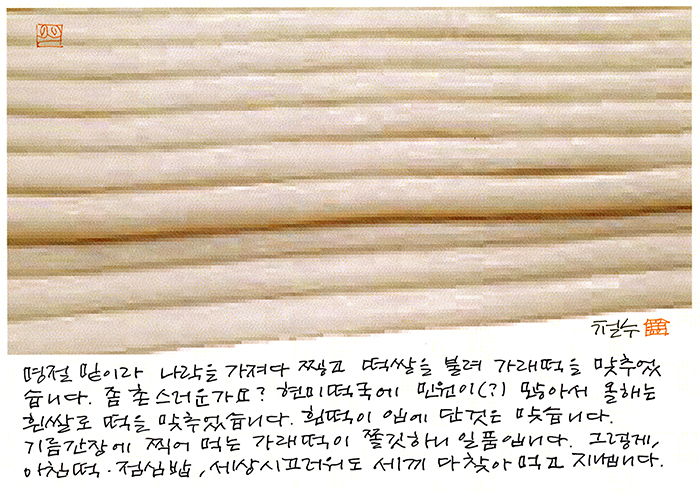 철수
명절 밑이라 나락을 가져다 찧고 떡쌀을 불려 가래떡을 맞추었
습니다. 좀 촌스러운가요? 현미떡국에 민원이(?) 많아서 올해는
흰쌀로 떡을 맞추었습니다. 흰떡이 입에 단것은 맞습니다.
기름간장에 찍어 먹는 가래떡이 쫄깃하니 일품입니다. 그렇게,
아침떡·점심밥, 세상시끄러워도 세끼 다 찾아 먹고 지냅니다.